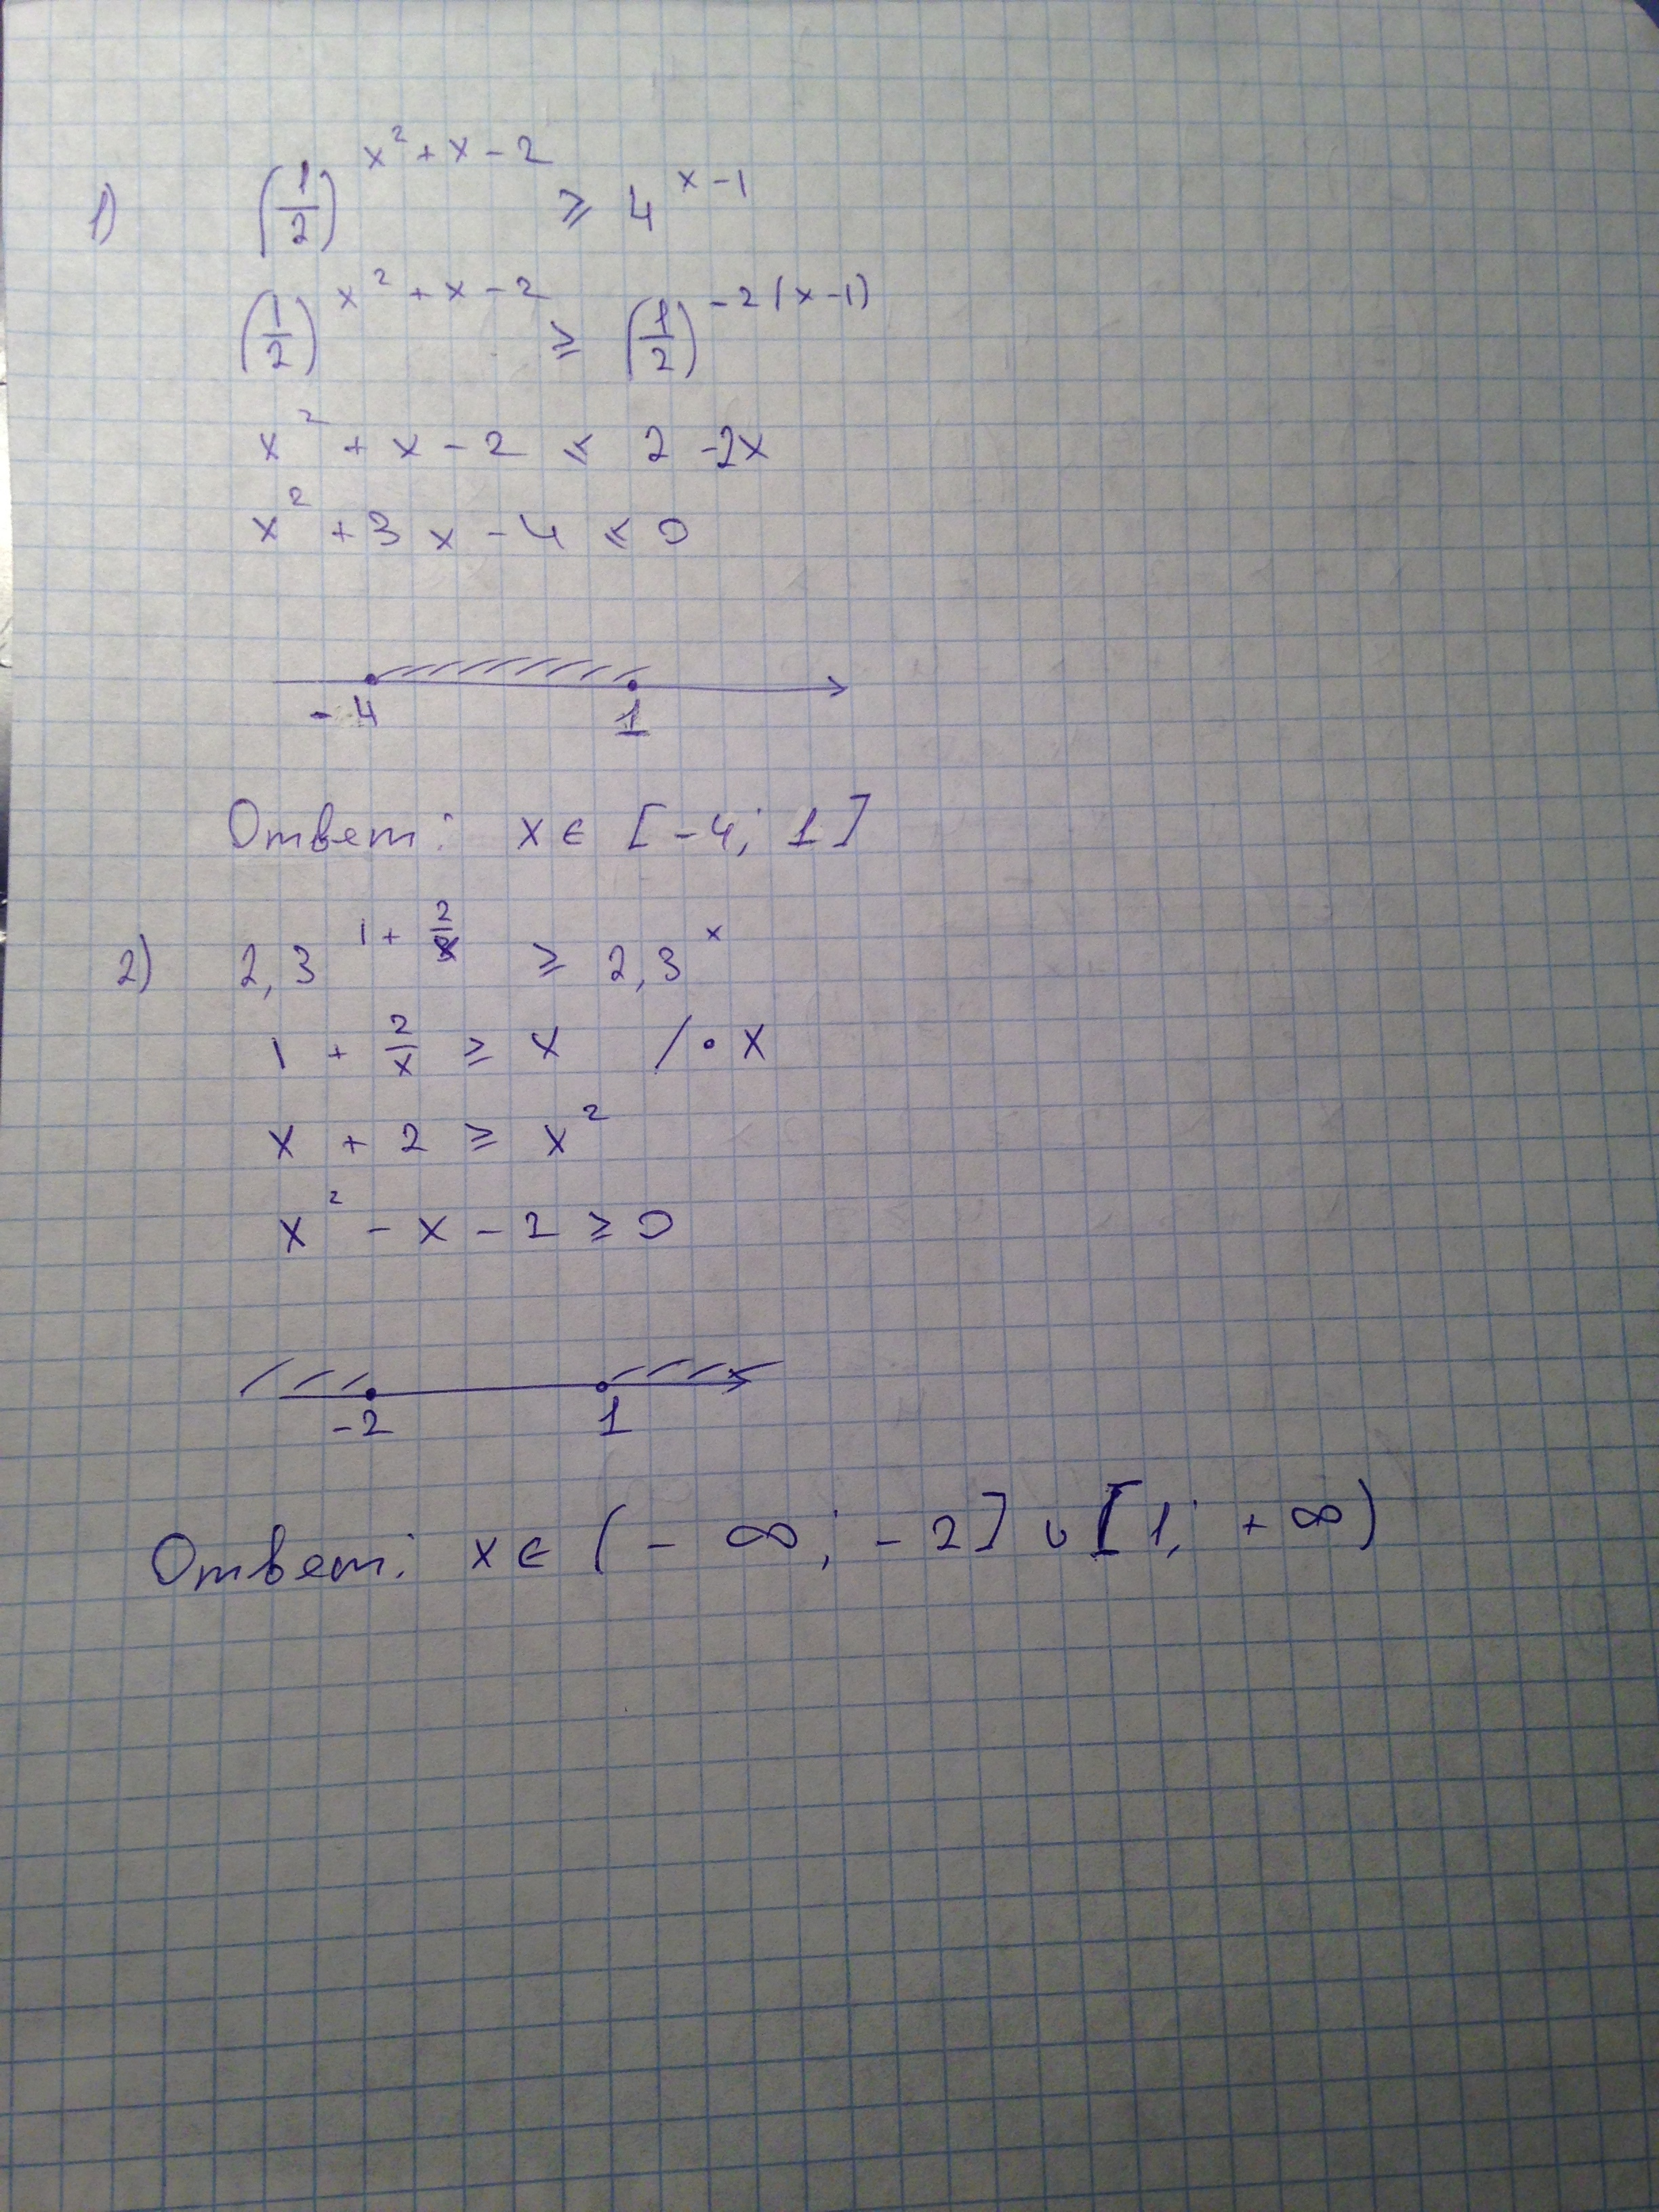 1) (1/2)^(x²+x-2) ≥ 4^(x-1)
(1/2)^(x²+x-2) ≥ (1/2)^(-2(x-1))
x² + x - 2 ≤ 2 - 2x
x² + 3x - 4 ≤ 0
-4 1
Ответ: x ∈ [-4; 1]
2) 2,3^(1+2/x) ≥ 2,3^x
1 + 2/x ≥ x / · x
x + 2 ≥ x²
x² - x - 2 ≥ 0
-2 1
Ответ: x ∈ (-∞; -2] ∪ [1; +∞)